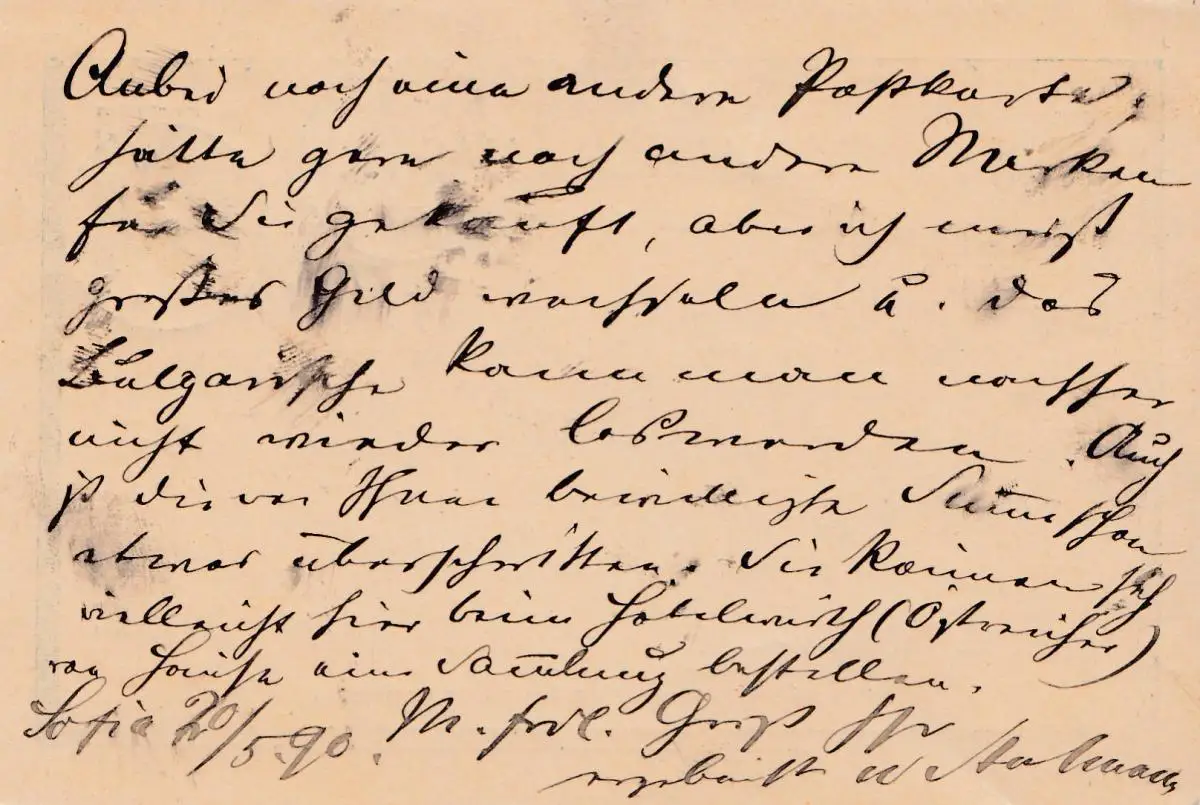 Anbei noch eine andere Postkarte,
hätte gern noch andere Marken
für Sie gekauft, aber ich muß
großes Geld wechseln u. das
Bulgarische kann man nachher
nicht wieder loswerden. Auch
ist die von Ihnen bewilligte Summe schon
etwas überschritten. Sie können sich
vielleicht hier beim Hotelwirth (Östreicher)
von Hause eine Sammlung bestellen.
Sofia 20/5.90. M. frdl. Gruß Ihr
ergebenster